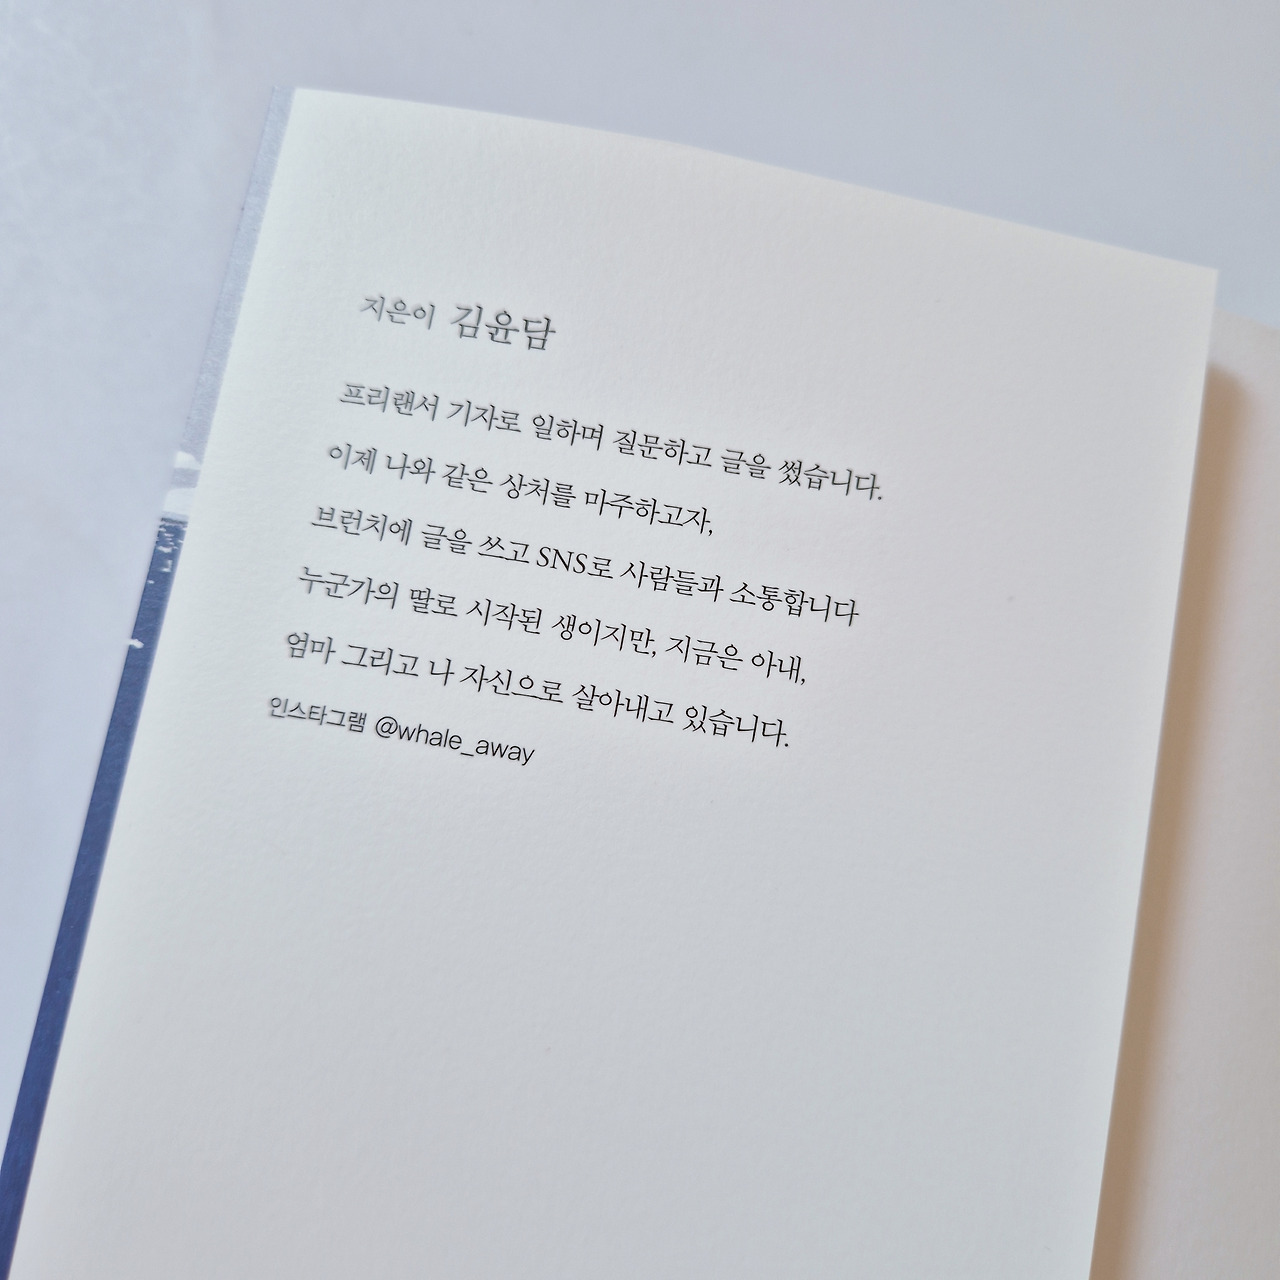 지은이 김윤담
프리랜서 기자로 일하며 질문하고 글을 썼습니다.
이제 나와 같은 상처를 마주하고자,
브런치에 글을 쓰고 SNS로 사람들과 소통합니다
누군가의 딸로 시작된 생이지만, 지금은 아내,
엄마 그리고 나 자신으로 살아내고 있습니다.
인스타그램 @whale_away